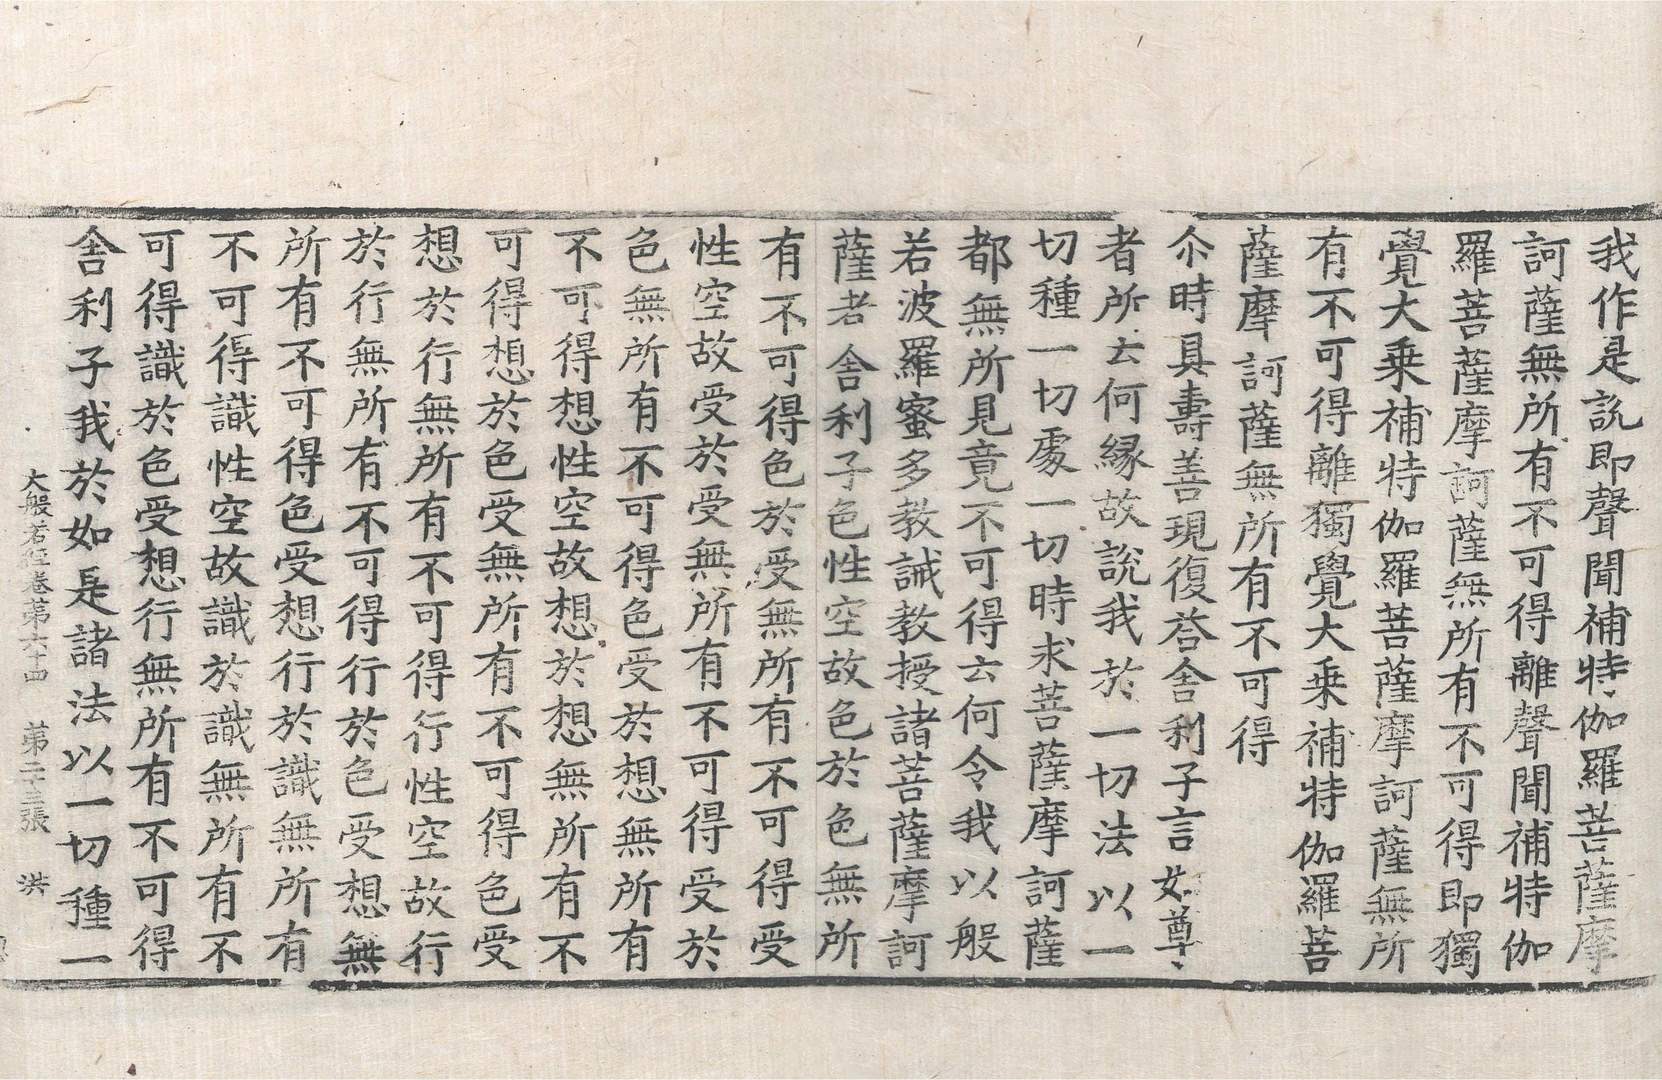 我作是說即聲聞補特伽羅菩薩摩
訶薩無所有不可得離聲聞補特伽
羅菩薩摩訶薩無所有不可得即獨
覺大乗補特伽羅菩薩摩訶薩無所
有不可得離獨覺大乗補特伽羅菩
薩摩訶薩無所有不可得
尒時具壽善現復荅舍利子言如尊
者所云何緣故說我於一切法以一
切種一切處一切時求菩薩摩訶薩
都無所見竟不可得云何令我以般
若波羅蜜多教誡教授諸菩薩摩訶
薩者舍利子色性空故色於色無所
有不可得色於受無所有不可得受
性空故受於受無所有不可得受於
色無所有不可得色受於想無所有
不可得想性空故想於想無所有不
可得想於色受無所有不可得色受
想於行無所有不可得行性空故行
於行無所有不可得行於色受想無
所有不可得色受想行於識無所有
不可得識性空故識於識無所有不
可得識於色受想行無所有不可得
舍利子我於如是諸法以一切種一
大般若經卷苐六十四 苐二十三張 洪